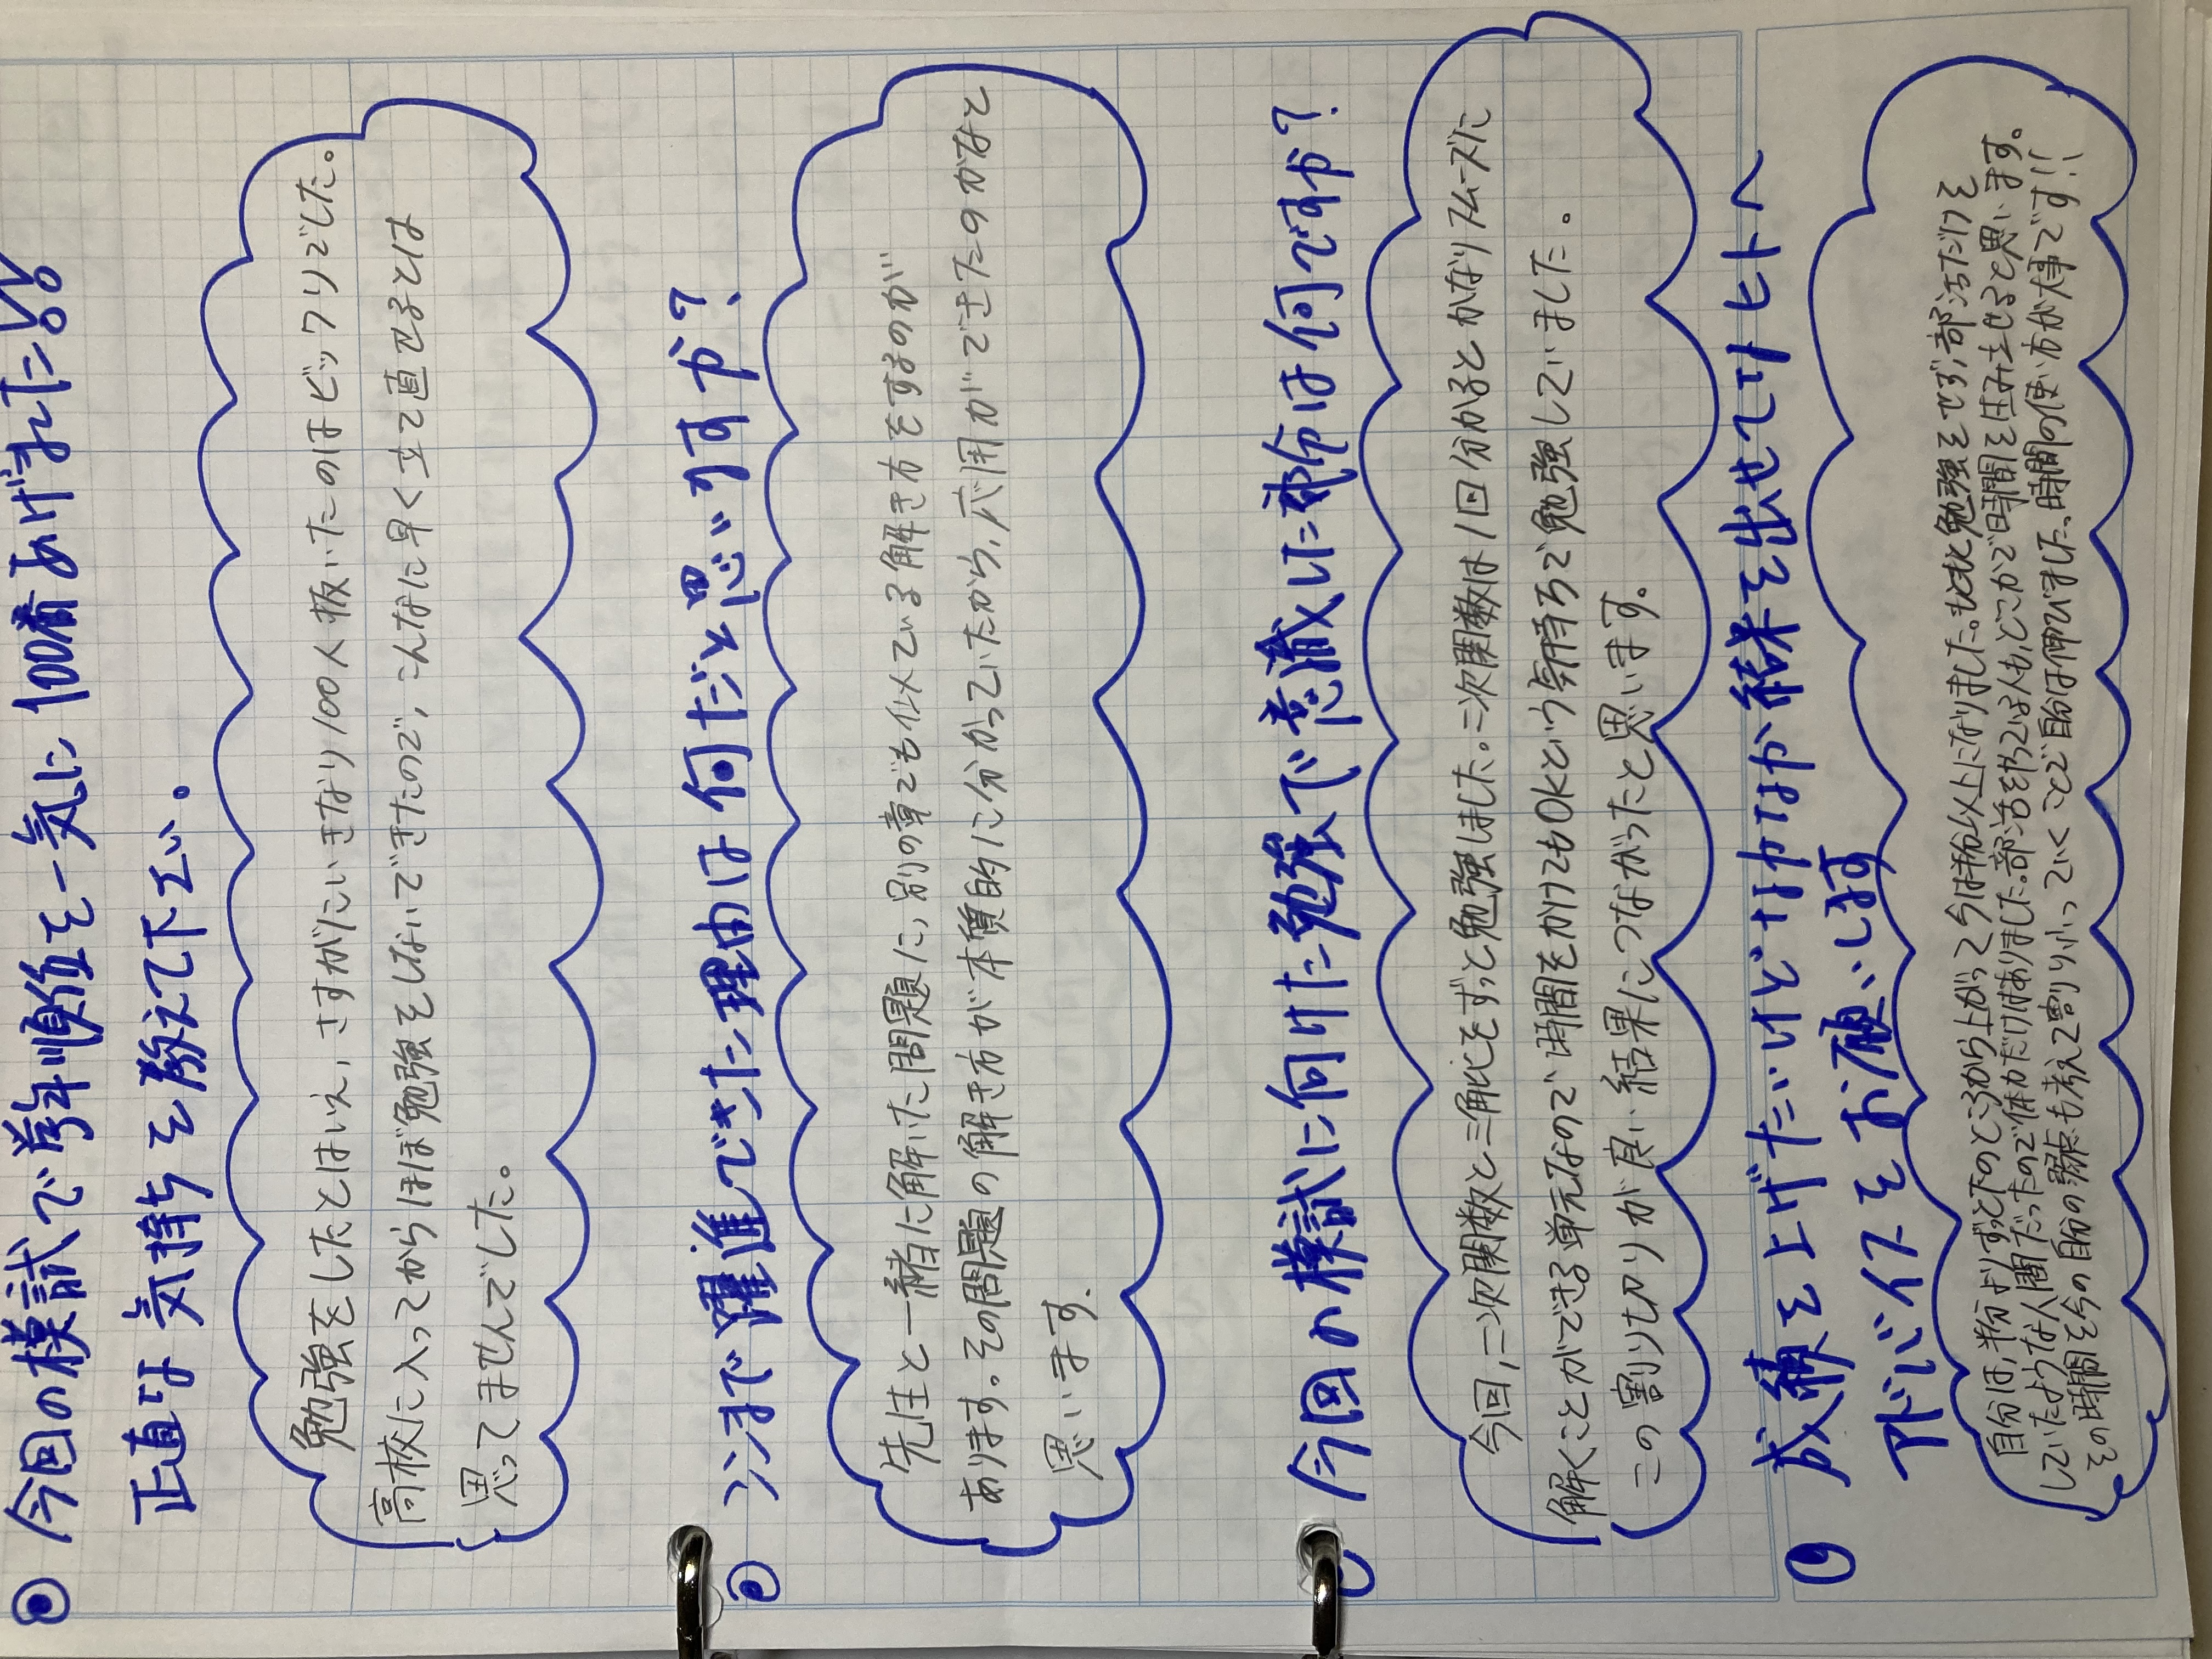 今回の模試で学年順位を一気に100番あげれた!!
正直な気持ちを教えて下さい。
勉強をしたとはいえ、さすがにいきなり100人抜いたのはビックリでした。
高校に入ってからほぼ勉強をしないできたので、こんなに早く立て直せるとは
思ってませんでした。
ココまで躍進できた理由は何だと思いますか?
先生と一緒に解いた問題に、別の章でも似ている解き方をするのが
あります。その問題の解き方が本質的に分かっていたから、応用ができたのかなと
思います。
今回の模試に向けた勉強で意識した部分は何ですか?
今回、二次関数と三角比をずっと勉強しました。二次関数は1回分かるとかなりスムーズに
解くことができる単元なので時間をかけてもOKという気持ちで勉強していました。
この割り切りが良い結果につながったと思います。
成績を上げたいけどなかなか結果を出せてないヒトへ
アドバイスをお願いします
自分は、半分よりずっと下のところから上がって今は半分以上になりました。もともと勉強をせず、部活だけを
していたような人間だったので体力だけはありました。部活をやってる人も、どこかで時間を生み出せると思います。
その時間を今の自分の弱点も考えて割りふっていくことで自分は伸びました。時間の使い方が大事です!!